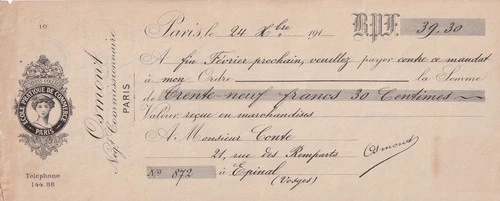 10
Paris, le 24 Xbre 191
B.P.F. 39,30
A fin Février prochain, veuillez payer contre ce mandat
à mon Ordre la Somme
de Trente-neuf francs 30 Centimes
Valeur reçue en marchandises
A Monsieur Conte
21, rue des Remparts
No 872 à Epinal
(Vosges)
Osmont
Osmont
Négt Commissionnaire
PARIS
ÉCOLE PRATIQUE DE COMMERCE
PARIS
Téléphone
144.88